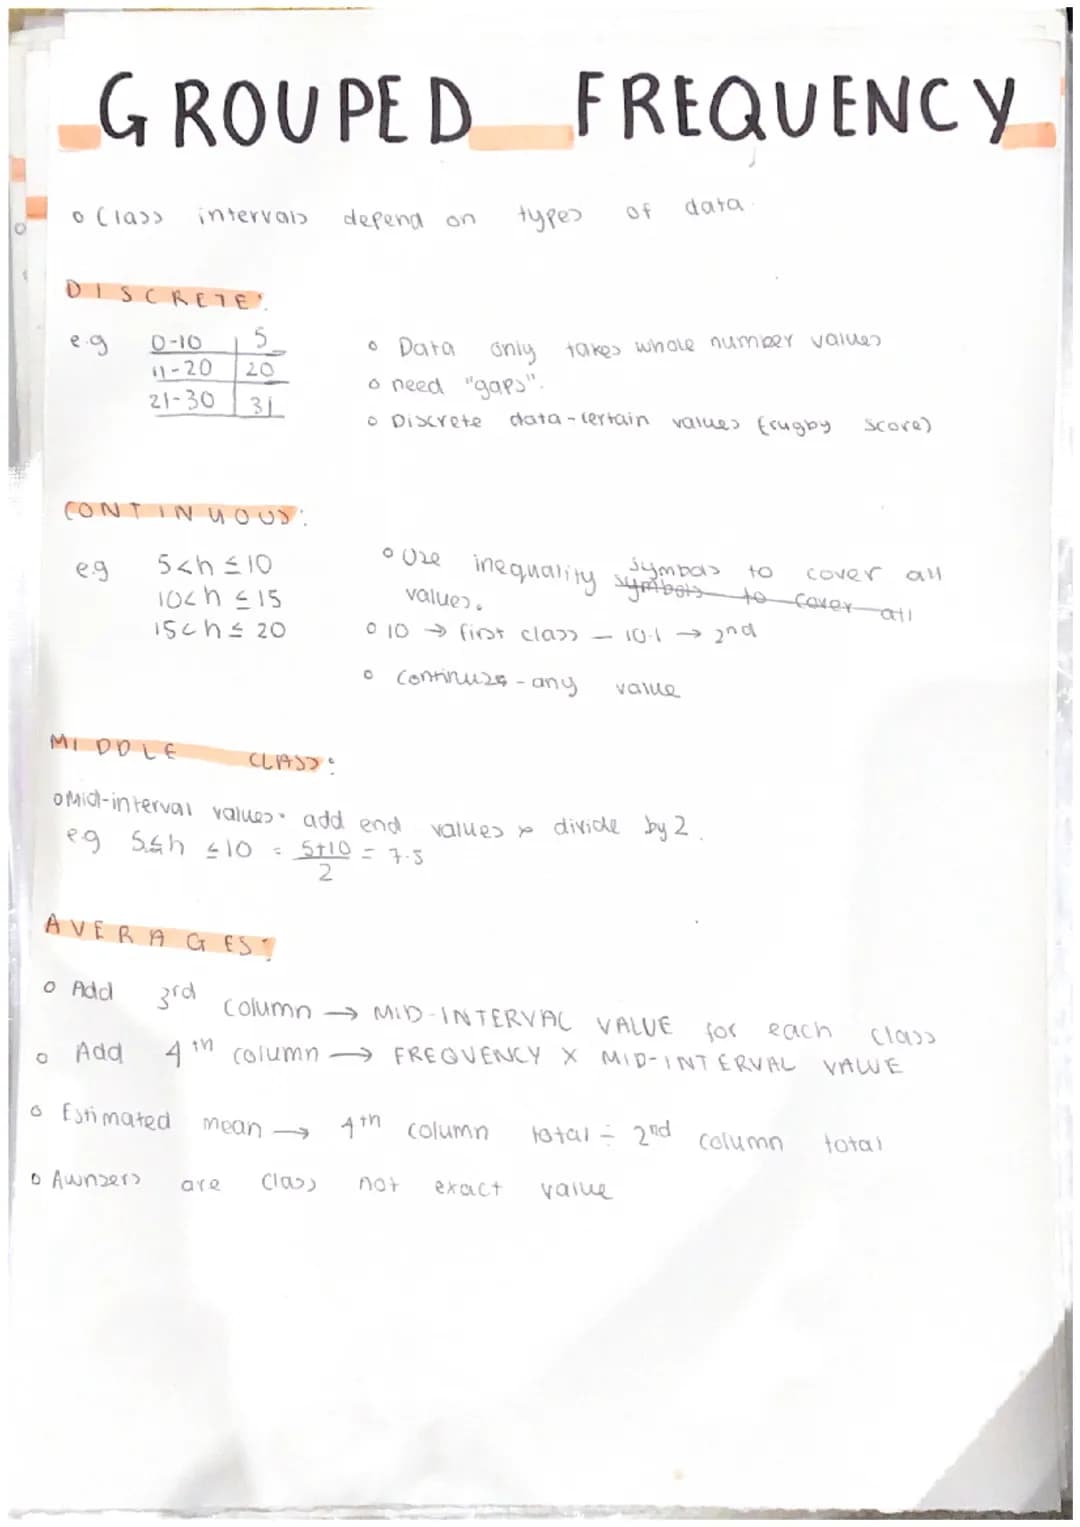 GROUPED FREQUENCY
o Class intervals depend on types of data.
DISCRETE:
e.g 0-10 5
11-20 20
21-30 31
o Data only takes whole number values
o need "gaps".
o Discrete data - certain values (rugby score)
CONTINUOUS:
e.g 5<h≤10
10<h≤15
15<h≤20
o Use inequality symbols to cover all
symbols to cover all
values.
o 10 → first class - 10.1 → 2nd
o - any value
MIDDLE CLASS:
o Mid-interval values. add end values divide by 2.
eg 5≤h≤10 = 5+10/2 = 7.5
AVERAGES:
o Add 3rd column → MID-INTERVAL VALUE for each class
o Add 4th column → FREQUENCY X MID-INTERVAL VALUE
o Estimated mean → 4th column total ÷ 2nd column total
o Awnsers are class not exact value